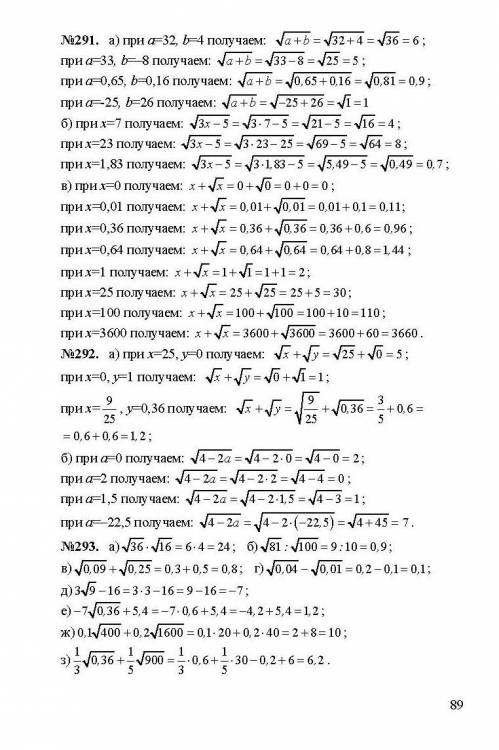 №291. а) при a=32, b=4 получаем: √(a+b) = √(32+4) = √36 = 6 ;
при a=33, b=–8 получаем: √(a+b) = √(33−8) = √25 = 5 ;
при a=0,65, b=0,16 получаем: √(a+b) = √(0,65+0,16) = √0,81 = 0,9 ;
при a=-25, b=26 получаем: √(a+b) = √(−25+26) = √1 = 1
б) при x=7 получаем: √(3x−5) = √(3·7−5) = √(21−5) = √16 = 4 ;
при x=23 получаем: √(3x−5) = √(3·23−25) = √(69−5) = √64 = 8 ;
при x=1,83 получаем: √(3x−5) = √(3·1,83−5) = √(5,49−5) = √0,49 = 0,7 ;
в) при x=0 получаем: x+√x = 0+√0 = 0+0 = 0 ;
при x=0,01 получаем: x+√x = 0,01+√0,01 = 0,01+0,1 = 0,11;
при x=0,36 получаем: x+√x = 0,36+√0,36 = 0,36+0,6 = 0,96 ;
при x=0,64 получаем: x+√x = 0,64+√0,64 = 0,64+0,8 = 1,44 ;
при x=1 получаем: x+√x = 1+√1 = 1+1 = 2 ;
при x=25 получаем: x+√x = 25+√25 = 25+5 = 30 ;
при x=100 получаем: x+√x = 100+√100 = 100+10 = 110 ;
при x=3600 получаем: x+√x = 3600+√3600 = 3600+60 = 3660 .
№292. а) при x=25, y=0 получаем: √x+√y = √25+√0 = 5 ;
при x=0, y=1 получаем: √x+√y = √0+√1 = 1 ;
при x=9/25 , y=0,36 получаем: √x+√y = √(9/25)+√0,36 = 3/5+0,6 =
= 0,6+0,6 = 1,2 ;
б) при a=0 получаем: √(4−2a) = √(4−2·0) = √(4−0) = 2 ;
при a=2 получаем: √(4−2a) = √(4−2·2) = √(4−4) = 0 ;
при a=1,5 получаем: √(4−2a) = √(4−2·1,5) = √(4−3) = 1 ;
при a=–22,5 получаем: √(4−2a) = √(4−2·(−22,5)) = √(4+45) = 7 .
№293. а) √36·√16 = 6·4 = 24 ; б) √81 : √100 = 9 : 10 = 0,9 ;
в) √0,09+√0,25 = 0,3+0,5 = 0,8 ; г) √0,04−√0,01 = 0,2−0,1 = 0,1 ;
д) 3√9−16 = 3·3−16 = 9−16 = −7 ;
е) −7√0,36+5,4 = −7·0,6+5,4 = −4,2+5,4 = 1,2 ;
ж) 0,1√400+0,2√1600 = 0,1·20+0,2·40 = 2+8 = 10 ;
з) 1/3√0,36+1/5√900 = 1/3·0,6+1/5·30−0,2+6 = 6,2 .
89